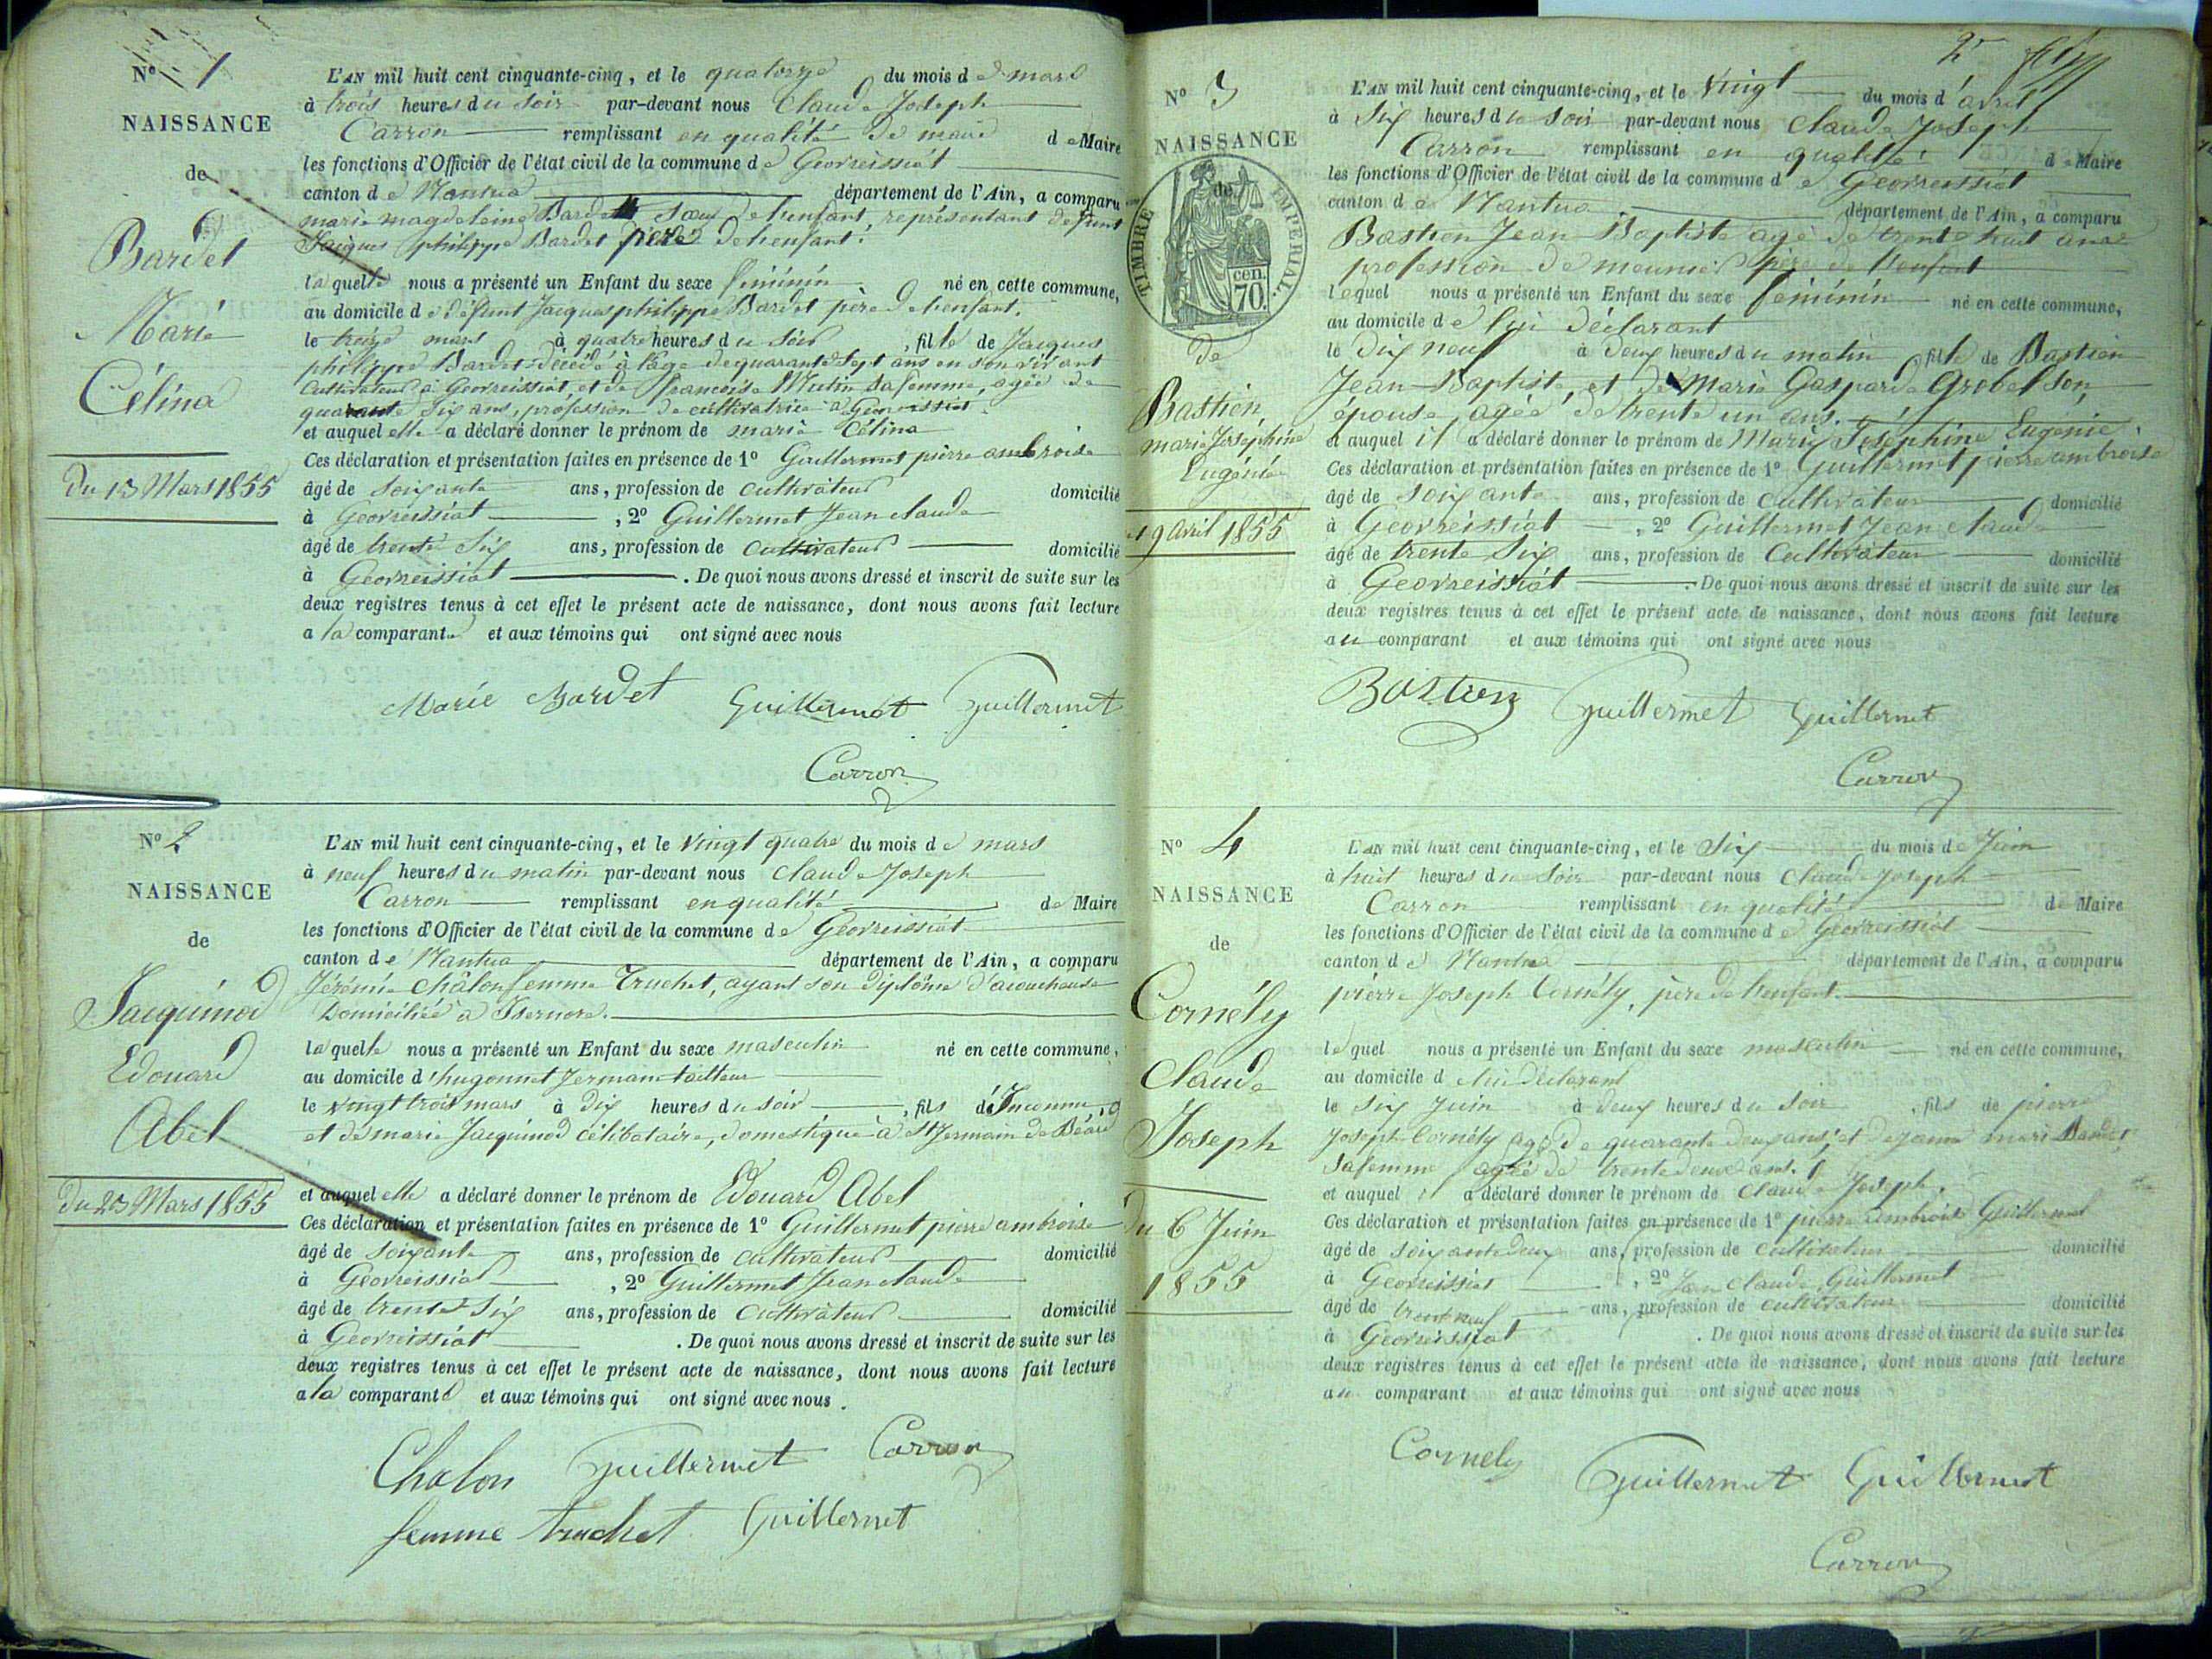 N° 1
NAISSANCE
de
Bardet
Marie
Célina
Du 13 Mars 1855
L'AN mil huit cent cinquante-cinq, et le quatorze du mois de mars
à trois heures du soir par-devant nous Claude Joseph
Carron remplissant en qualité de maire de Maire
les fonctions d'Officier de l'état civil de la commune de Geovreissiat
canton de Nantua département de l'Ain, a comparu
marie magdeleine Bardet sœur de l'enfant, représentant defunt
Jacques philippe Bardet père de l'enfant.
laquelle nous a présenté un Enfant du sexe féminin né en cette commune,
au domicile de défunt Jacques philippe Bardet père de l'enfant.
le treize mars à quatre heures du soir, fille de Jacques
philippe Bardet décédé à l'âge de quarante sept ans en son vivant
cultivateur à Geovreissiat, et de françoise Mutin sa femme, agée de
quarante six ans, profession de cultivatrice à Geovreissiat.
et auquel elle a déclaré donner le prénom de marie Célina
Ces déclaration et présentation faites en présence de 1° Guillermet pierre ambroise
âgé de soixante ans, profession de cultivateur domicilié
à Geovreissiat, 2° Guillermet Jean claude
âgé de trente six ans, profession de cultivateur domicilié
à Geovreissiat. De quoi nous avons dressé et inscrit de suite sur les
deux registres tenus à cet effet le présent acte de naissance, dont nous avons fait lecture
a la comparante et aux témoins qui ont signé avec nous
Marie Bardet Guillermet Guillermet
Carron
N° 2
NAISSANCE
de
Jacquinod
Edouard
Abel
Du 23 Mars 1855
L'AN mil huit cent cinquante-cinq, et le vingt quatre du mois de mars
à neuf heures du matin par-devant nous Claude Joseph
Carron remplissant en qualité de Maire
les fonctions d'Officier de l'état civil de la commune de Geovreissiat
canton de Nantua département de l'Ain, a comparu
Jérémie châlon femme Truchet, ayant son diplôme d'acoucheuse
Domiciliée à Isernore.
laquelle nous a présenté un Enfant du sexe masculin né en cette commune,
au domicile d'hugonnet Jermain tailleur
le vingt trois mars à dix heures du soir, fils de Inconnu,
et de marie Jacquinod célibataire, domestique à St Jermain de Béard
et auquel elle a déclaré donner le prénom de Edouard Abel
Ces déclaration et présentation faites en présence de 1° Guillermet pierre ambroise
âgé de soixante ans, profession de cultivateur domicilié
à Geovreissiat, 2° Guillermet Jean claude
âgé de trente six ans, profession de cultivateur domicilié
à Geovreissiat. De quoi nous avons dressé et inscrit de suite sur les
deux registres tenus à cet effet le présent acte de naissance, dont nous avons fait lecture
a la comparante et aux témoins qui ont signé avec nous.
Chalon Guillermet Carron
femme truchet Guillermet
N° 3
NAISSANCE
de
TIMBRE IMPERIAL.
cen. 70.
de
Bastien,
marie Joséphine
Eugénie
19 avril 1855
L'AN mil huit cent cinquante-cinq, et le vingt du mois d'avril
à six heures du soir par-devant nous Claude Joseph
Carron remplissant en qualité de Maire
les fonctions d'Officier de l'état civil de la commune de Geovreissiat
canton de Nantua département de l'Ain, a comparu
Bastien Jean Baptiste agé de trente huit ans
profession de meunier père de l'enfant
lequel nous a présenté un Enfant du sexe féminin né en cette commune,
au domicile de lui déclarant
le dix neuf à deux heures du matin fille de Bastien
Jean-Baptiste, et de Marie Gasparde Grobel son
épouse, agée de trente un ans.
et auquel il a déclaré donner le prénom de Marie Joséphine Eugénie.
Ces déclaration et présentation faites en présence de 1° Guillermet pierre ambroise
âgé de soixante ans, profession de cultivateur domicilié
à Geovreissiat, 2° Guillermet Jean claude
âgé de trente six ans, profession de cultivateur domicilié
à Geovreissiat. De quoi nous avons dressé et inscrit de suite sur les
deux registres tenus à cet effet le présent acte de naissance, dont nous avons fait lecture
au comparant et aux témoins qui ont signé avec nous
Bastien Guillermet Guillermet
Carron
N° 4
NAISSANCE
de
Cornély
Claude
Joseph
Du 6 Juin
1855
L'AN mil huit cent cinquante-cinq, et le six du mois de Juin
à huit heures du soir par-devant nous Claude Joseph
Carron remplissant en qualité de Maire
les fonctions d'Officier de l'état civil de la commune de Geovreissiat
canton de Nantua département de l'Ain, a comparu
pierre Joseph Cornély, père de l'enfant.
lequel nous a présenté un Enfant du sexe masculin né en cette commune,
au domicile de lui déclarant
le six Juin à deux heures du soir, fils de pierre
Joseph Cornély agé de quarante deux ans, et de Jeanne marie Bardet
sa femme agée de trente deux ans.
et auquel il a déclaré donner le prénom de Claude Joseph.
Ces déclaration et présentation faites en présence de 1° pierre ambroise Guillermet
âgé de soixante deux ans, profession de cultivateur domicilié
à Geovreissiat, 2° Jean Claude Guillermet
âgé de trent neuf ans, profession de cultivateur domicilié
à Geovreissiat. De quoi nous avons dressé et inscrit de suite sur les
deux registres tenus à cet effet le présent acte de naissance, dont nous avons fait lecture
au comparant et aux témoins qui ont signé avec nous
Cornely Guillermet Guillermet
Carron